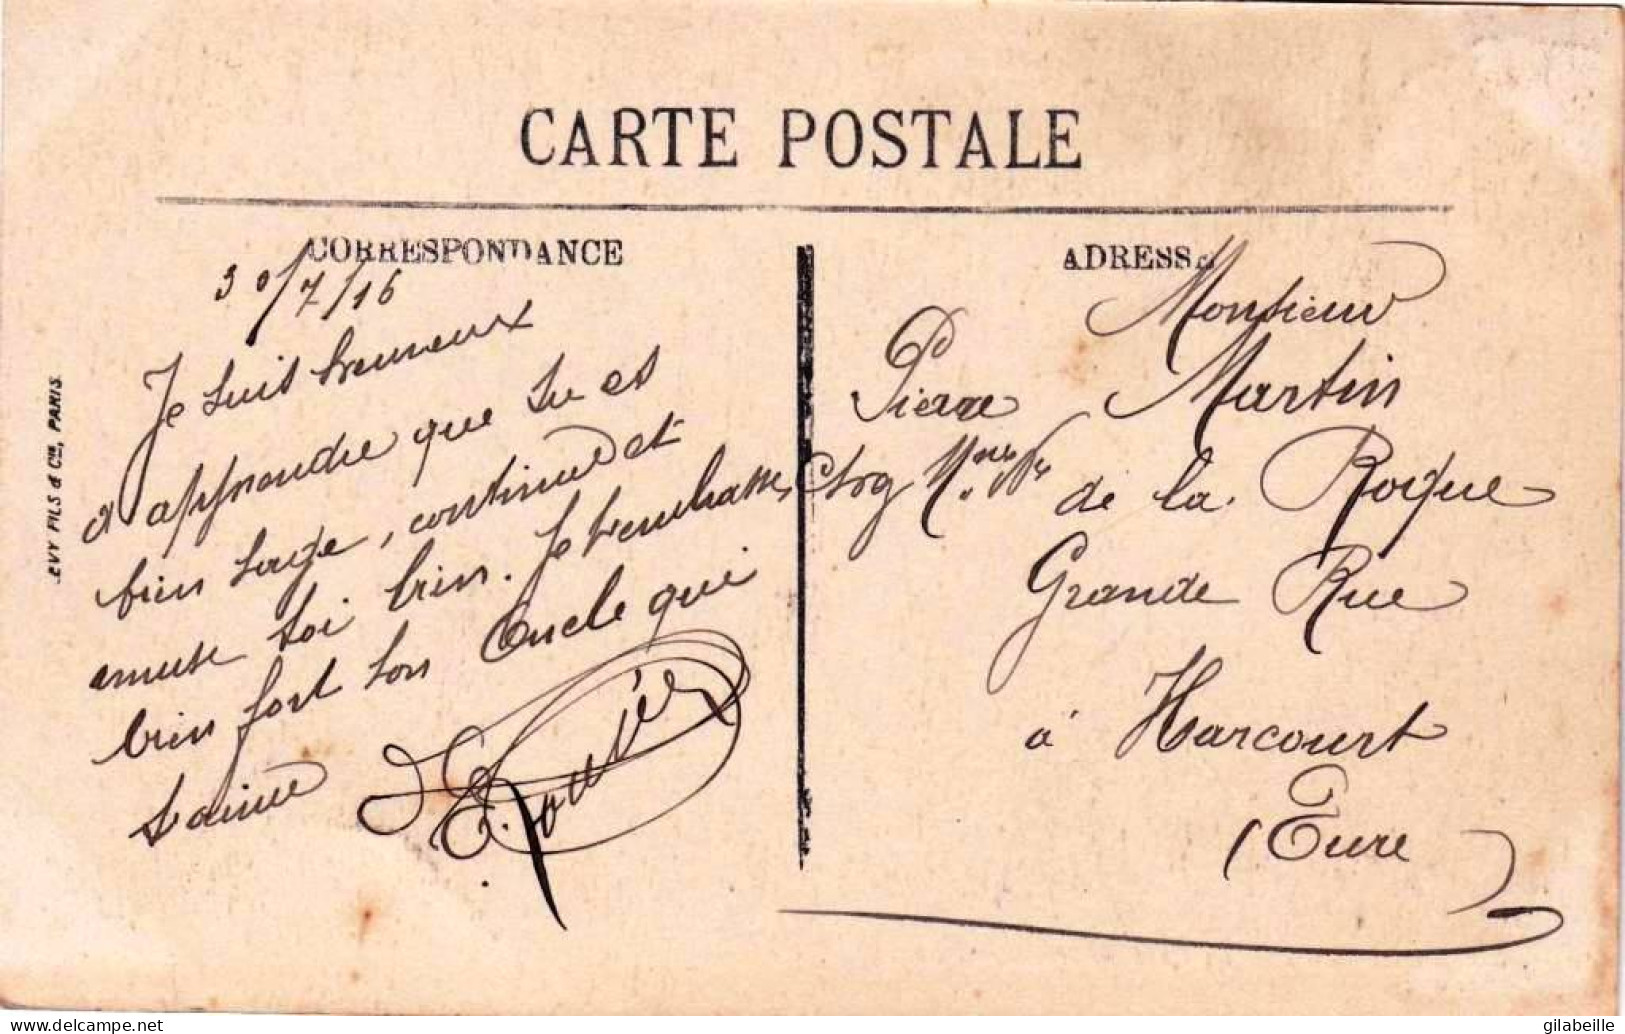 CARTE POSTALE
CORRESPONDANCE
30/7/16
Je suis heureux
d'apprendre que tu es
bien sage, continue et
amuse toi bien. Je t'embrasse
bien fort ton Oncle qui
t'aime
ADRESSE
Monsieur
Pierre Martin
de la Roque
Grande Rue
à Harcourt
(Eure)
LEVY FILS & Cie, PARIS
gilabeille